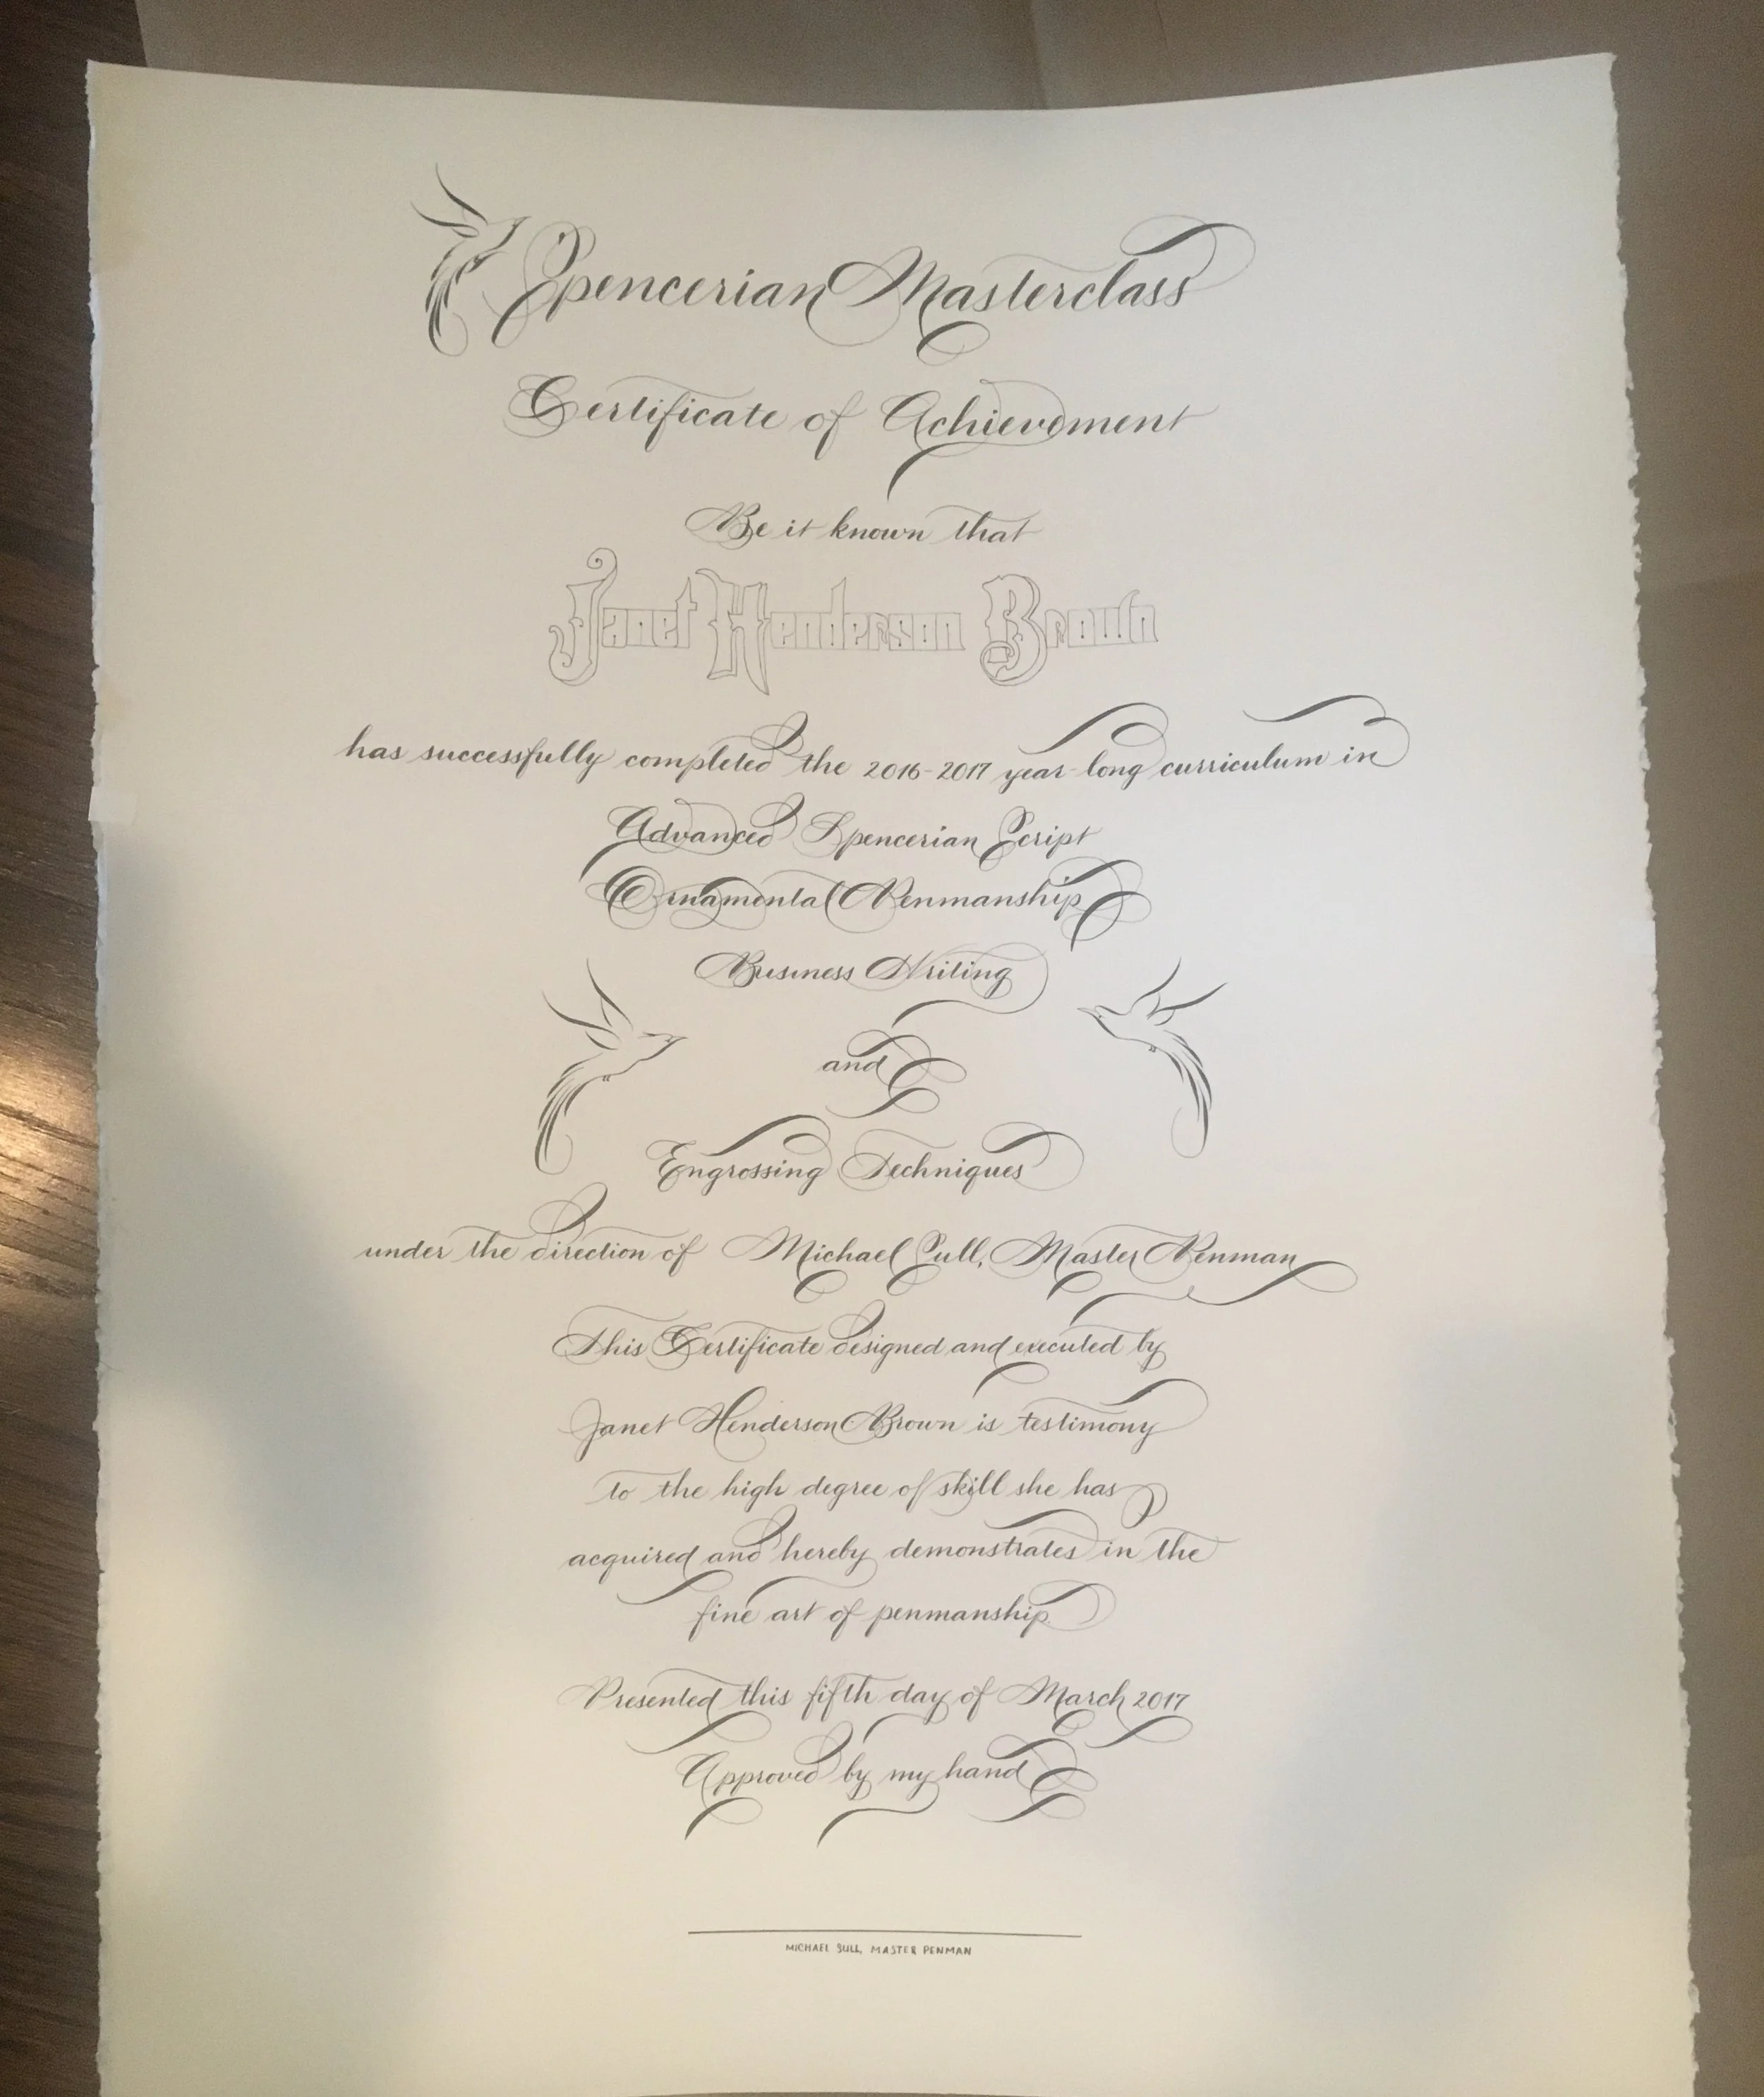 Spencerian Masterclass
Certificate of Achievement
Be it known that
Janet Henderson Brown
has successfully completed the 2016-2017 year-long curriculum in
Advanced Spencerian Script
Ornamental Penmanship
Business Writing
and
Engrossing Techniques
under the direction of Michael Sull, Master Penman
This Certificate designed and executed by
Janet Henderson Brown is testimony
to the high degree of skill she has
acquired and hereby demonstrates in the
fine art of penmanship.
Presented this fifth day of March 2017
Approved by my hand
MICHAEL SULL, MASTER PENMAN